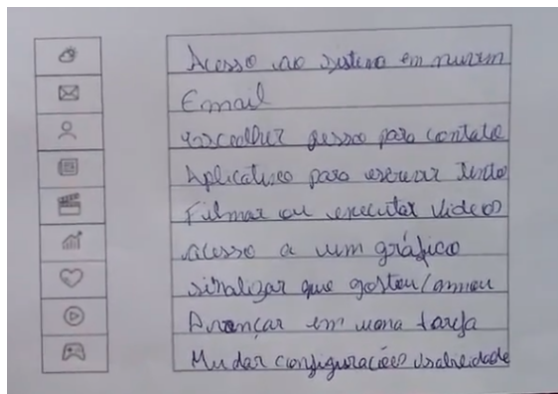 Acesso ao sistema em nuvem
Email
Escolher pessoa para contato
Aplicativo para escrever texto
Filmar ou executar vídeos
acesso a um gráfico
sinalizar que gostou/amou
Avançar em uma tarefa
Mudar configurações